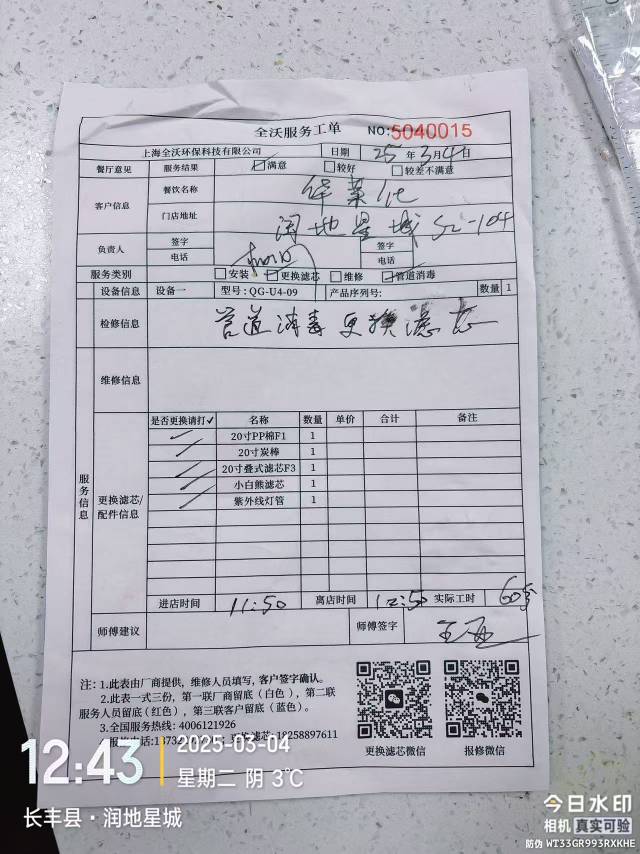 全沃服务工单 NO:5040015
上海全沃环保科技有限公司 日期 25年3月4日
餐厅意见 服务结果 ☑满意 □较好 □较差不满意
客户信息 餐饮名称 华莱仕
门店地址 润地星城 S2-104
负责人 签字 签字
电话 电话
服务类别 □安装 ☑更换滤芯 □维修 ☑管道消毒
设备信息 设备一 型号: QG-U4-09 产品序列号: 数量 1
检修信息 管道消毒 更换滤芯
维修信息
服务信息
更换滤芯/配件信息
是否更换请打✓ 名称 数量 单价 合计 备注
✓ 20寸PP棉F1 1
✓ 20寸炭棒 1
✓ 20寸叠式滤芯F3 1
✓ 小白熊滤芯 1
✓ 紫外线灯管 1
进店时间 11:50 离店时间 12:50 实际工时 60分
师傅建议 师傅签字
注: 1.此表由厂商提供，维修人员填写，客户签字确认。
2.此表一式三份，第一联厂商留底（白色），第二联
服务人员留底（红色），第三联客户留底（蓝色）。
3.全国服务热线: 4006121926
更换滤芯: 18258897611
更换滤芯微信 报修微信
12:43 2025-03-04
星期二 阴 3℃
长丰县·润地星城
今日水印
相机 真实可验
防伪 WT33GR993RXKHE